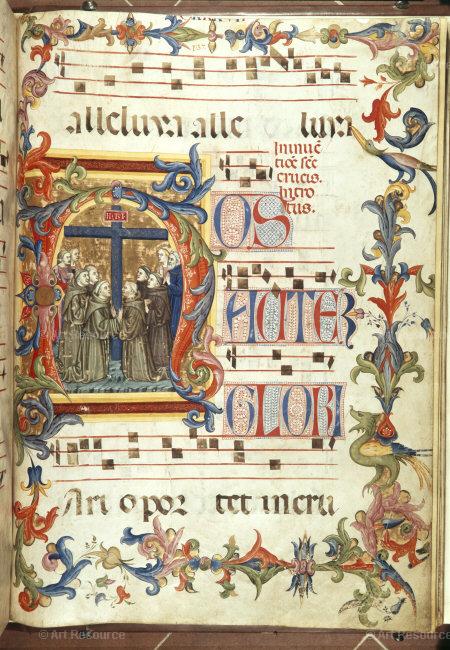 alleluya alle luya
In inuē
tiōe scē
crucis.
Intro
itus.
OS
AUTEM
GLORI
Ari opor tet in cru
© Art Resource
© Art Resource